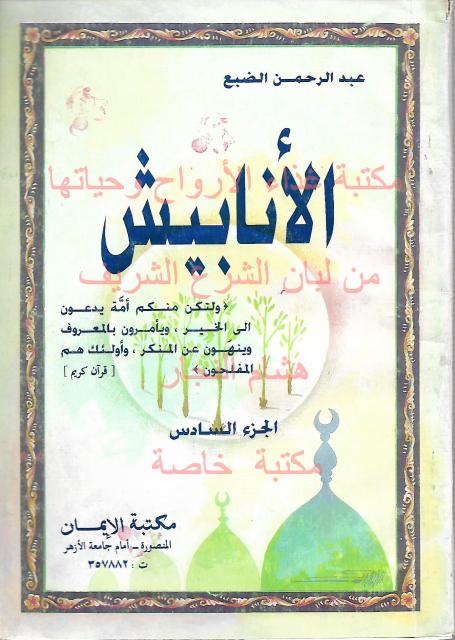 عبد الرحمن الضبع
مكتبة غذاء الأرواح وحياتها
الأنابيش
من لبان الشرع الشريف
﴿ ولتكن منكم أمَّة يدعون
الى الخير ، ويأمرون بالمعروف
وينهون عن المنكر ، وأولئك هم
المفلحون ﴾ [ قرآن كريم ]
هشام النجار
الجزء السادس
مكتبة خاصة
مكتبة الإيمان
المنصورة - أمام جامعة الأزهر
ت : ٣٥٧٨٨٢